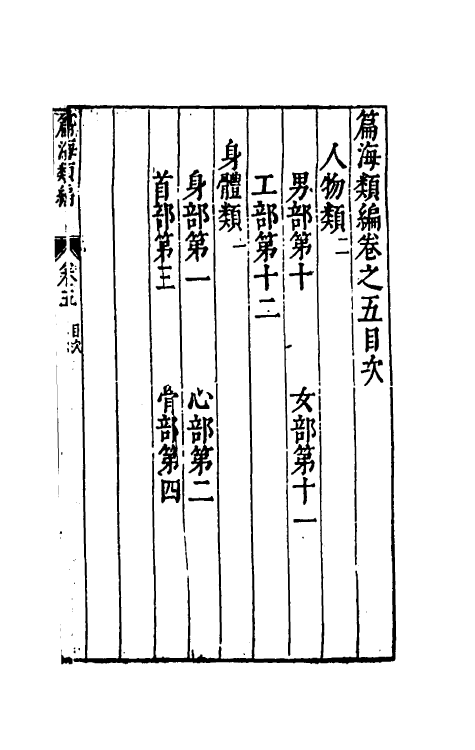 篇海類編卷之五目次
人物類二
男部第十 女部第十一
工部第十二
身體類一
身部第一 心部第二
首部第三 骨部第四
篇海類編 卷五 目次